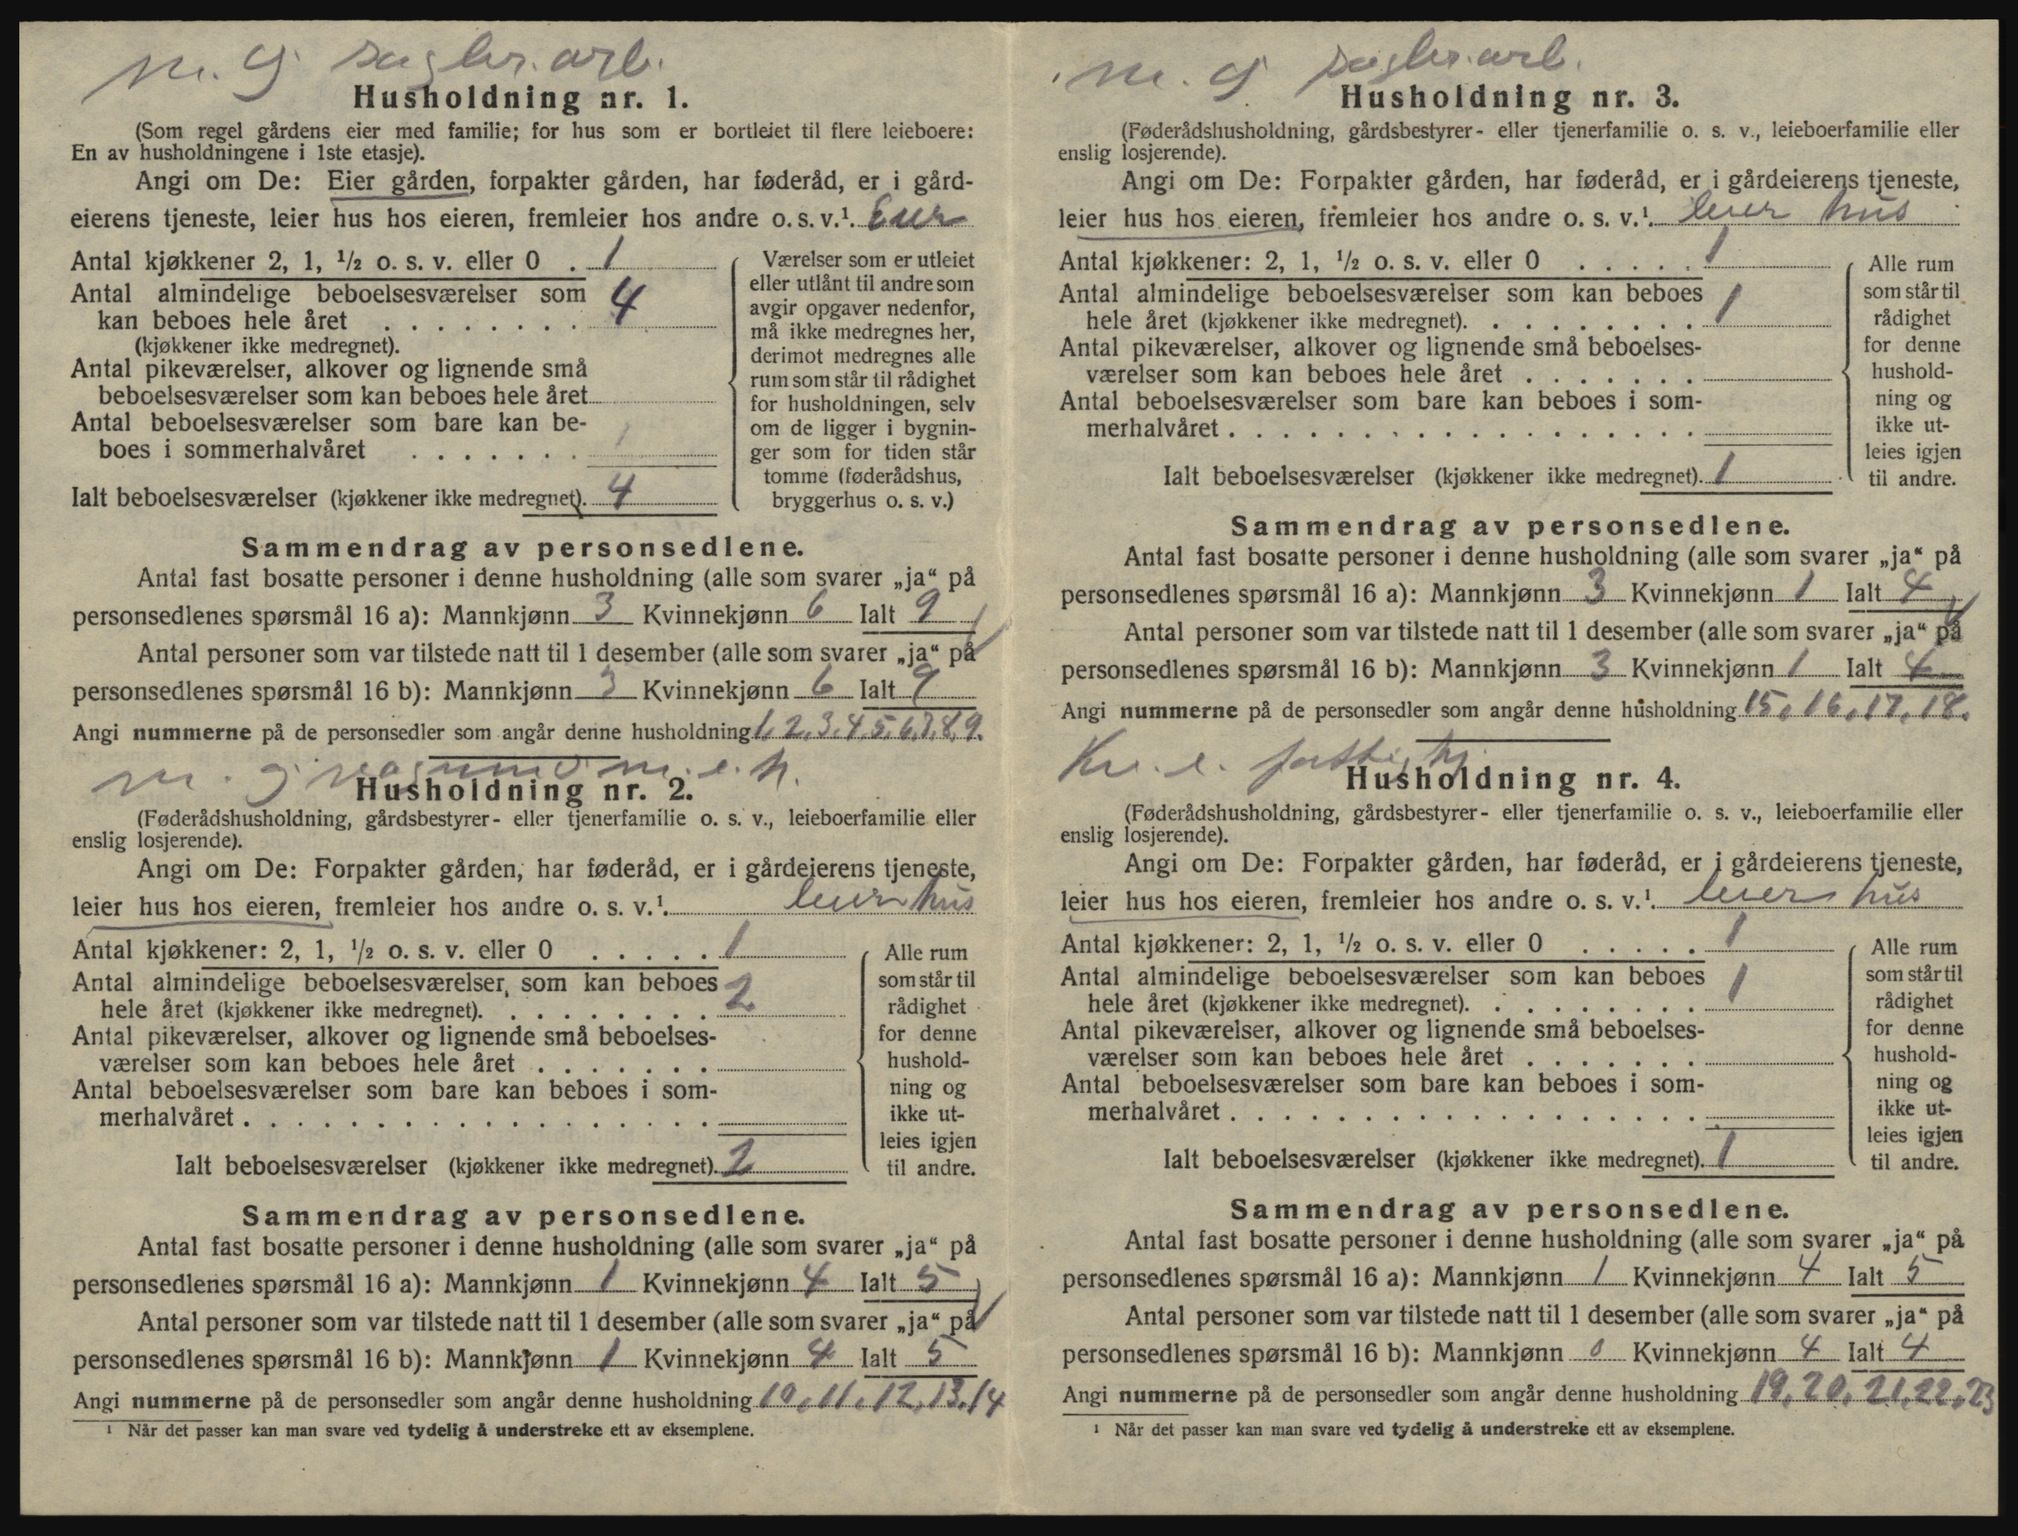 m. g. dagl.arb.
Husholdning nr. 1.
(Som regel gårdens eier med familie; for hus som er bortleiet til flere leieboere:
En av husholdningene i 1ste etasje).
Angi om De: Eier gården, forpakter gården, har føderåd, er i gård-
eierens tjeneste, leier hus hos eieren, fremleier hos andre o. s. v.¹. Eier
Antal kjøkkener 2, 1, ½ o. s. v. eller 0 . 1
Antal almindelige beboelsesværelser som
kan beboes hele året . . . . . . . . 4
(kjøkkener ikke medregnet).
Antal pikeværelser, alkover og lignende små
beboelsesværelser som kan beboes hele året
Antal beboelsesværelser som bare kan be-
boes i sommerhalvåret . . . . . . .
Ialt beboelsesværelser (kjøkkener ikke medregnet). 4
Værelser som er utleiet
eller utlånt til andre som
avgir opgaver nedenfor,
må ikke medregnes her,
derimot medregnes alle
rum som står til rådighet
for husholdningen, selv
om de ligger i bygnin-
ger som for tiden står
tomme (føderådshus,
bryggerhus o. s. v.)
Sammendrag av personsedlene.
Antal fast bosatte personer i denne husholdning (alle som svarer „ja“ på
personsedlenes spørsmål 16 a): Mannkjønn 3 Kvinnekjønn 6 Ialt 9
Antal personer som var tilstede natt til 1 desember (alle som svarer „ja“ på
personsedlenes spørsmål 16 b): Mannkjønn 3 Kvinnekjønn 6 Ialt 9
Angi nummerne på de personsedler som angår denne husholdning 1,2,3,4,5,6,7,8,9.
m. g. m. e. h.
Husholdning nr. 2.
(Føderådshusholdning, gårdsbestyrer- eller tjenerfamilie o. s. v., leieboerfamilie eller
enslig losjerende).
Angi om De: Forpakter gården, har føderåd, er i gårdeierens tjeneste,
leier hus hos eieren, fremleier hos andre o. s. v.¹. leier hus
Antal kjøkkener: 2, 1, ½ o. s. v. eller 0 . . . . . 1
Antal almindelige beboelsesværelser som kan beboes
hele året (kjøkkener ikke medregnet). . . . . . . . . 2
Antal pikeværelser, alkover og lignende små beboelses-
værelser som kan beboes hele året . . . . . . .
Antal beboelsesværelser som bare kan beboes i som-
merhalvåret . . . . . . . . . . . . . . . . . .
Ialt beboelsesværelser (kjøkkener ikke medregnet). 2
Alle rum
som står til
rådighet
for denne
hushold-
ning og
ikke ut-
leies igjen
til andre.
Sammendrag av personsedlene.
Antal fast bosatte personer i denne husholdning (alle som svarer „ja“ på
personsedlenes spørsmål 16 a): Mannkjønn 1 Kvinnekjønn 4 Ialt 5
Antal personer som var tilstede natt til 1 desember (alle som svarer „ja“ på
personsedlenes spørsmål 16 b): Mannkjønn 1 Kvinnekjønn 4 Ialt 5
Angi nummerne på de personsedler som angår denne husholdning 10,11,12,13,14
¹ Når det passer kan man svare ved tydelig å understreke ett av eksemplene.
m. g. dagl.arb.
Husholdning nr. 3.
(Føderådshusholdning, gårdsbestyrer- eller tjenerfamilie o. s. v., leieboerfamilie eller
enslig losjerende).
Angi om De: Forpakter gården, har føderåd, er i gårdeierens tjeneste,
leier hus hos eieren, fremleier hos andre o. s. v.¹. leier hus
Antal kjøkkener: 2, 1, ½ o. s. v. eller 0 . . . . . 1
Antal almindelige beboelsesværelser som kan beboes
hele året (kjøkkener ikke medregnet). . . . . . . . . 1
Antal pikeværelser, alkover og lignende små beboelses-
værelser som kan beboes hele året . . . . . . .
Antal beboelsesværelser som bare kan beboes i som-
merhalvåret . . . . . . . . . . . . . . . . . .
Ialt beboelsesværelser (kjøkkener ikke medregnet). 1
Alle rum
som står til
rådighet
for denne
hushold-
ning og
ikke ut-
leies igjen
til andre.
Sammendrag av personsedlene.
Antal fast bosatte personer i denne husholdning (alle som svarer „ja“ på
personsedlenes spørsmål 16 a): Mannkjønn 3 Kvinnekjønn 1 Ialt 4
Antal personer som var tilstede natt til 1 desember (alle som svarer „ja“ på
personsedlenes spørsmål 16 b): Mannkjønn 3 Kvinnekjønn 1 Ialt 4
Angi nummerne på de personsedler som angår denne husholdning 15,16,17,18.
Kv. e.
Husholdning nr. 4.
(Føderådshusholdning, gårdsbestyrer- eller tjenerfamilie o. s. v., leieboerfamilie eller
enslig losjerende).
Angi om De: Forpakter gården, har føderåd, er i gårdeierens tjeneste,
leier hus hos eieren, fremleier hos andre o. s. v.¹. leier hus
Antal kjøkkener: 2, 1, ½ o. s. v. eller 0 . . . . . 1
Antal almindelige beboelsesværelser som kan beboes
hele året (kjøkkener ikke medregnet). . . . . . . . . 1
Antal pikeværelser, alkover og lignende små beboelses-
værelser som kan beboes hele året . . . . . . .
Antal beboelsesværelser som bare kan beboes i som-
merhalvåret . . . . . . . . . . . . . . . . . .
Ialt beboelsesværelser (kjøkkener ikke medregnet). 1
Alle rum
som står til
rådighet
for denne
hushold-
ning og
ikke ut-
leies igjen
til andre.
Sammendrag av personsedlene.
Antal fast bosatte personer i denne husholdning (alle som svarer „ja“ på
personsedlenes spørsmål 16 a): Mannkjønn 1 Kvinnekjønn 4 Ialt 5
Antal personer som var tilstede natt til 1 desember (alle som svarer „ja“ på
personsedlenes spørsmål 16 b): Mannkjønn 0 Kvinnekjønn 4 Ialt 4
Angi nummerne på de personsedler som angår denne husholdning 19,20,21,22,23
¹ Når det passer kan man svare ved tydelig å understreke ett av eksemplene.